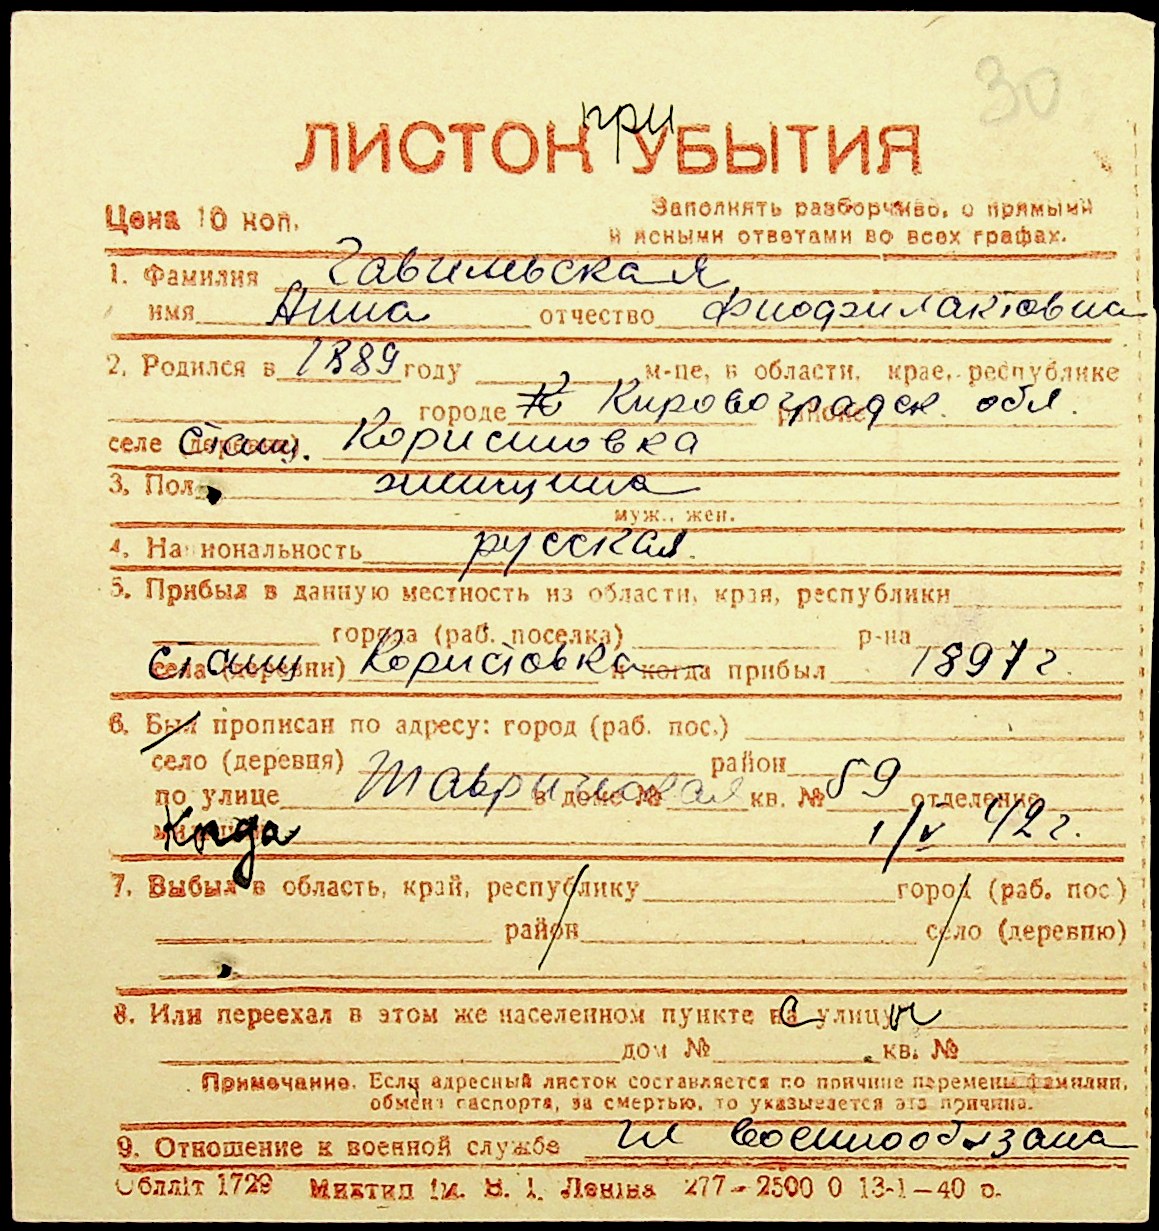 30
при
ЛИСТОК УБЫТИЯ
Цена 10 коп.
Заполнять разборчиво, с прямыми
и ясными ответами во всех графах.
1. Фамилия Гавильская
имя Анна отчество
2. Родился в 1889 году м-це, в области, крае, республике
городе Кировоградск. обл. районе
селе (деревне) станц. Користовка
3. Пол женщина
муж., жен.
4. Национальность русская
5. Прибыл в данную местность из области, края, республики
города (раб. поселка) р-на
села (деревни) станц Користовка и когда прибыл 1897 г.
6. Был прописан по адресу: город (раб. пос.)
село (деревня) район
по улице Таврическая в доме № кв. № 59 отделение
милиции Когда 1/V 42 г.
7. Выбыл в область, край, республику город (раб. пос.)
район село (деревню)
8. Или переехал в этом же населенном пункте на с улицу ы
дом № кв. №
Примечание. Если адресный листок составляется по причине перемены фамилии,
обмена паспорта, за смертью, то указывается эта причина.
9. Отношение к военной службе не военнообязана
Облліт 1729 Миктип ім. В. І. Леніна 277-2500 0 13-1-40 р.